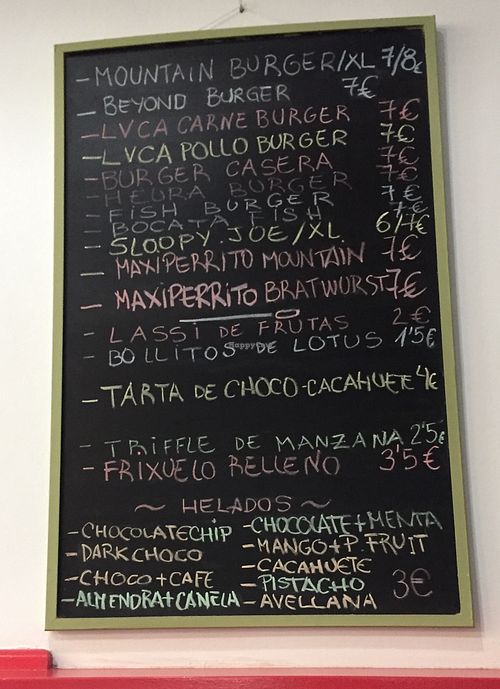 - MOUNTAIN BURGER/XL 7/8€
- BEYOND BURGER 7€
- LVCA CARNE BURGER 7€
- LVCA POLLO BURGER 7€
- BURGER CASERA 7€
- HEURA BURGER 7€
- FISH BURGER 7€
- BOCATA FISH 7€
- SLOOPY JOE/XL 6/7€
- MAXIPERRITO MOUNTAIN 7€
- MAXIPERRITO BRATWURST 7€
- LASSI DE FRUTAS 2€
- BOLLITOS DE LOTUS 1'5€
- TARTA DE CHOCO-CACAHUETE 4€
- TRIFFLE DE MANZANA 2'5€
- FRIXUELO RELLENO 3'5€
~ HELADOS ~
- CHOCOLATE CHIP
- DARK CHOCO
- CHOCO + CAFE
- ALMENDRA + CANELA
- CHOCOLATE + MENTA
- MANGO + P. FRUIT
- CACAHUETE
- PISTACHO
- AVELLANA
3€